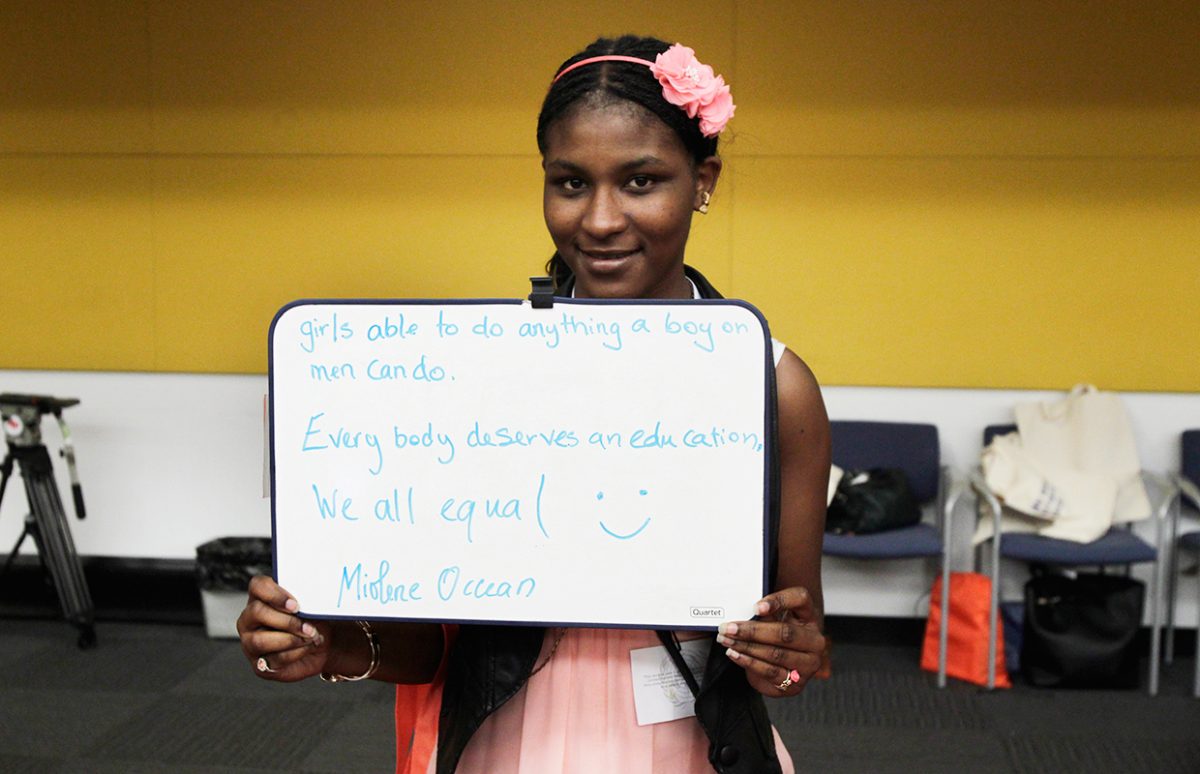 girls able to do anything a boy on
men can do.
Every body deserves an education.
We all equal
Miolene Occean
Quartet